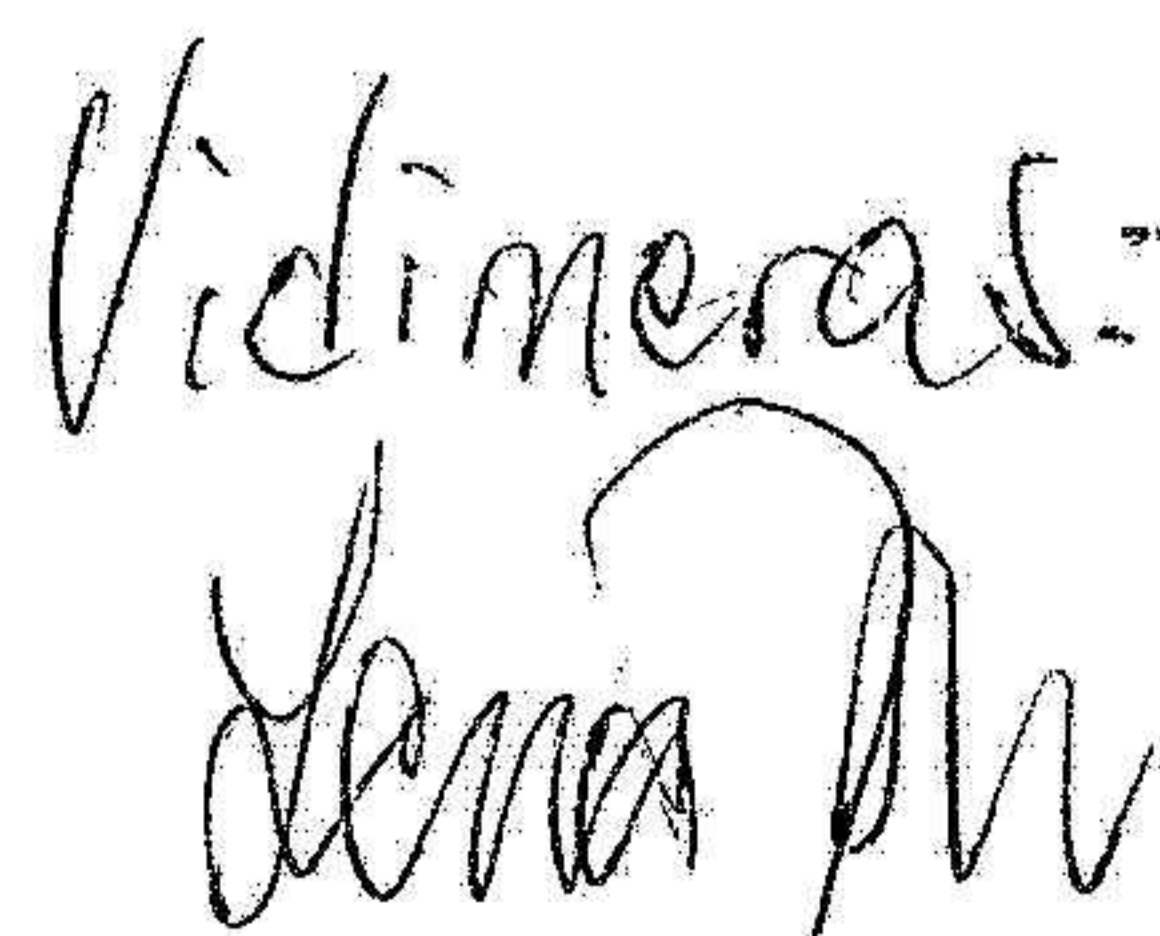 Vidimeras:
Lena